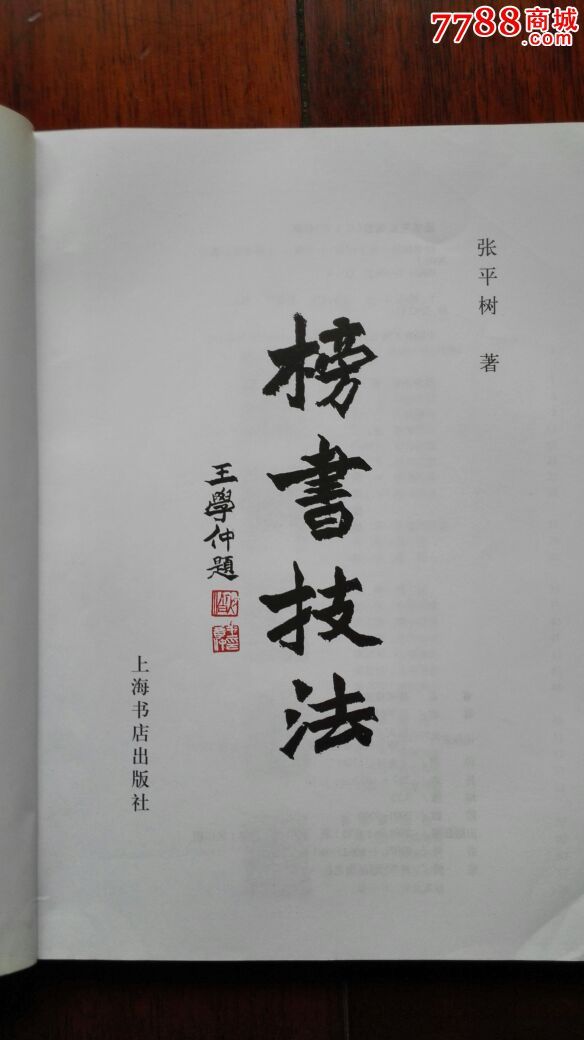 7788商城
.com
张平树 著
榜書技法
王學仲題
上海书店出版社